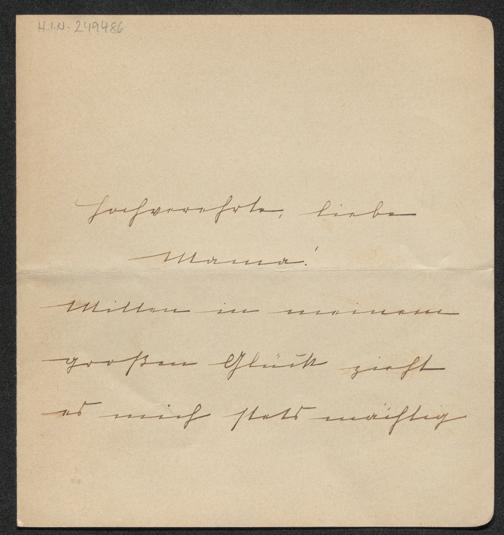 H.I.N. 249486
Hochverehrte, liebe
Mama!
Mitten in meinem
großen Glück zieht
es mich stets mächtig